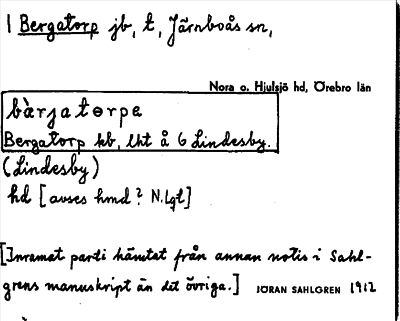 1 Bergatorp jb, t, Järnboås sn,
Nora o. Hjulsjö hd, Örebro län
bàrjatɵrpa
Bergatorp kb, lht å G Lindesby.
(Lindesby)
hd [avses hmd? N.Lgt]
[Inramat parti hämtat från annan notis i Sahl-
grens manuskript än det övriga.] JÖRAN SAHLGREN 1912